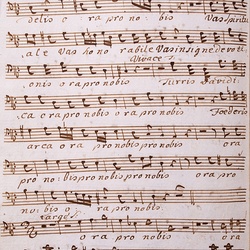 delis o ra pro no bis Vas spiritu
ale Vas ho no rabile Vas insigne devoti
Vivace
onis o ra pro nobis Turris Davidi
ca o ra pro nobis o ra pro nobis Foederis
arca o ra pro nobis o ra pro nobis ora
pro no: bis pro nobis pro nobis ora
no: bis o ra pro nobis
Large
o ra pro nobis ora